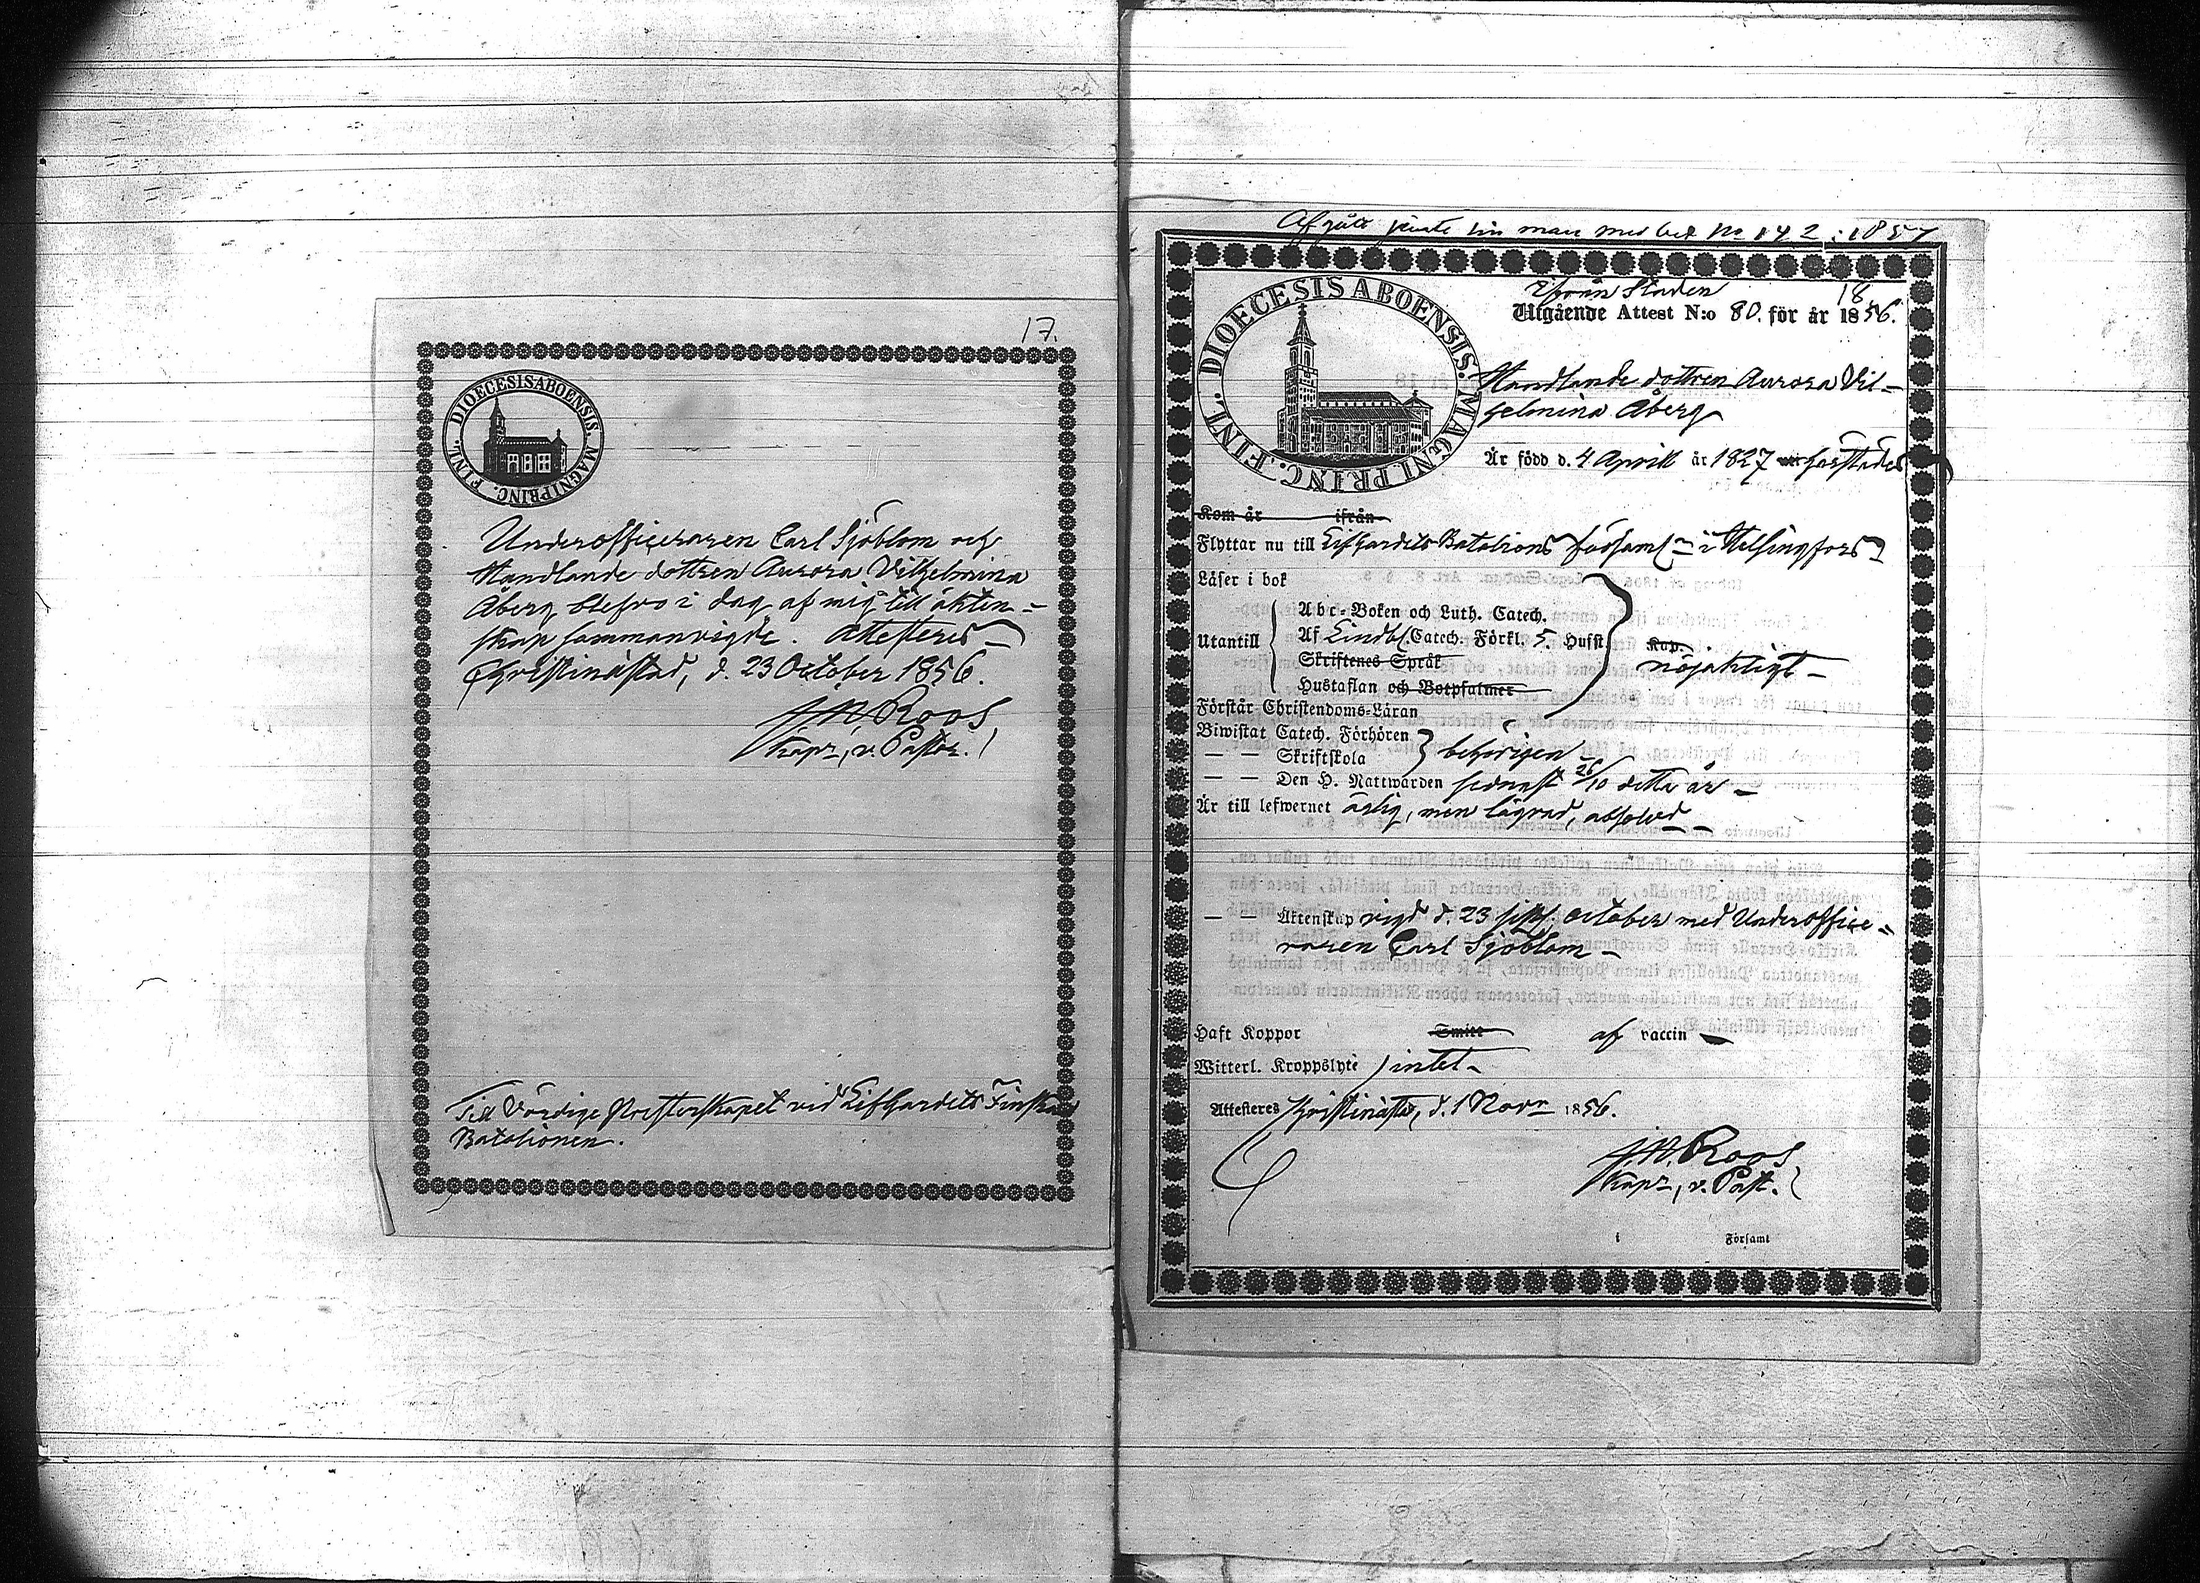 17.
DIOECESIS ABOENSIS. MAGNI PRINC. FINL.
Underofficeraren Carl Sjöblom och
Handlande dottren Aurora Vilhelmina
Åberg blefvo i dag af mig till äkten-
skap sammanvigde. Attesteras
Christinæstad, d. 23 October 1856.
Roos
Kapz, v. Pastor.
Till Vördige Presterskapet vid LifGardets Finska
Batalionen.
Afgått jemte sin man med bet. N:o 142 : 1857
DIOECESIS ABOENSIS. MAGNI PRINC. FINL.
Ifrån Staden
18.
Utgående Attest N:o 80. för år 1856.
Handlande dottren Aurora Vil-
helmina Åberg
Är född d. 4 April år 1827 härstädes
Kom år ifrån
Flyttar nu till LifGardets Batalions församl. i Helsingfors
Läser i bok
Abc-Boken och Luth. Catech.
Utantill Af Lindbl. Catech. Förkl. 5. Hufst Kap.
Skriftenes Språk
nöjaktigt
Hustaflan och Botpsalmer
Förstår Christendoms-Läran
Biwistat Catech. Förhören
— — Skriftskola behörigen
— — Den H. Nattwarden sednast 26/10 detta år
Är till lefwernet ärlig, men lägrad, absolverad
— — Äktenskap vigd d. 23 October med Underoffice-
raren Carl Sjöblom
Haft Koppor Smitt af vaccin
Witterl. Kroppslyte intet
Attesteres Christinæstad, d. 1 Novr 1856.
Roos
Kapz, v. Past.
i Församl